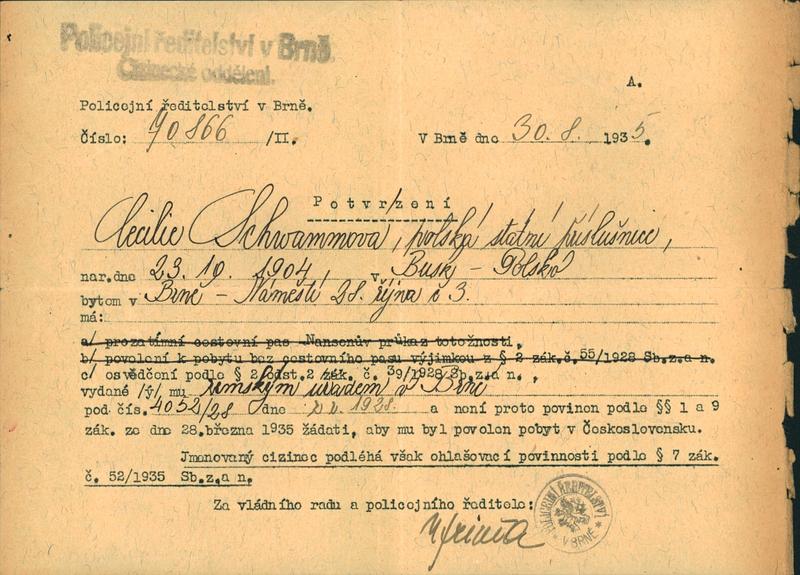 Policejní ředitelství v Brně.
Cizinecké oddělení.
A.
Policejní ředitelství v Brně.
Číslo: 70866 /II. V Brně dne 30.8. 1935.
Potvrzení
Cecilie Schwammová, polská státní příslušnice,
nar.dne 23.10. 1904, v Busk - Polsko
bytem v Brně - Náměstí 28. října č 3.
má:
a/ prozatímní cestovní pas Nansenův průkaz totožnosti,
b/ povolení k pobytu bez cestovního pasu výjimkou z § 2 zák.č.55/1928 Sb.z.a n.
c/ osvědčení podle § 2 odst.2 zák. č. 39/1928 Sb.z.a n.,
vydané /ý/ mu zemským úřadem v Brně
pod čís. 4052/28 dne 1928. a není proto povinen podle §§ 1 a 9
zák. ze dne 28.března 1935 žádati, aby mu byl povolen pobyt v Československu.
Jmenovaný cizinec podléhá však ohlašovací povinnosti podle § 7 zák.
č. 52/1935 Sb.z.a n.
Za vládního radu a policejního ředitele:
POLICEJNÍ ŘEDITELSTVÍ
* V BRNĚ *